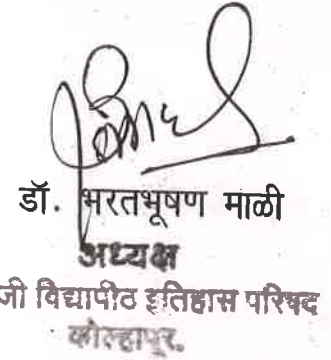 डॉ. भरतभूषण माळी
अध्यक्ष
जी विद्यापीठ इतिहास परिषद
कोल्हापूर.